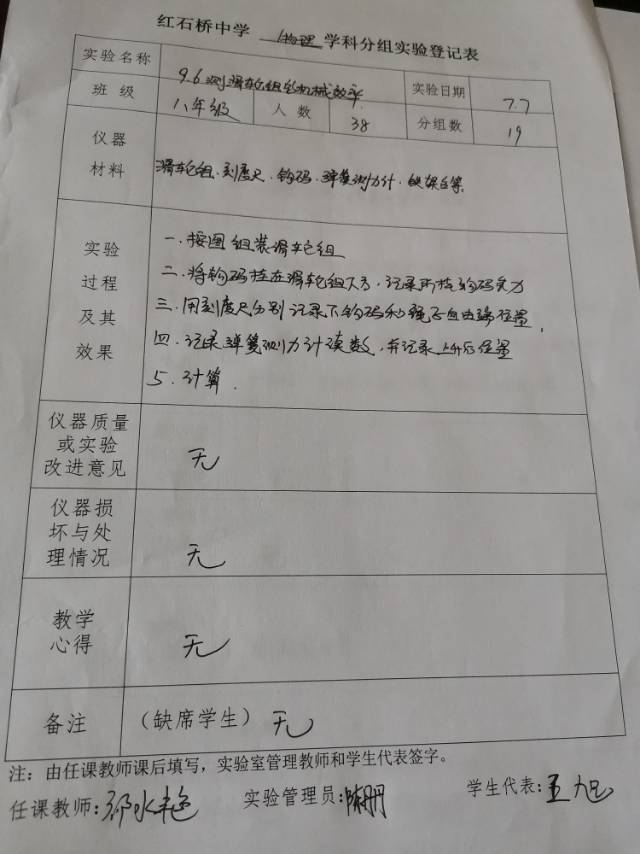 红石桥中学 物理 学科分组实验登记表
实验名称 9.6测滑轮组的机械效率 实验日期 7.7
班级 八年级 人数 38 分组数 19
仪器材料 滑轮组、刻度尺、钩码、弹簧测力计、铁架台等。
实验过程及其效果
一、按图组装滑轮组
二、将钩码挂在滑轮组下方,记录所挂钩码重力
三、用刻度尺分别记录下钩码和绳子自由端位置,
四、记录弹簧测力计读数,并记录上升后位置
5、计算.
仪器质量或实验改进意见 无
仪器损坏与处理情况 无
教学心得 无
备注 (缺席学生) 无
注:由任课教师课后填写,实验室管理教师和学生代表签字。
任课教师: 实验管理员: 学生代表:王旭